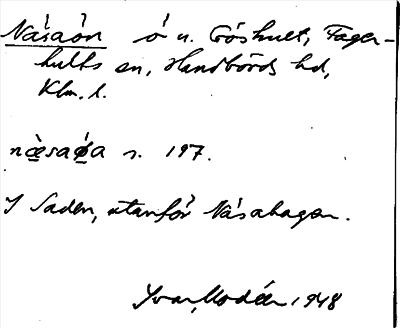 Näsaön ö u. Gåshult, Fager-
hults sn, Handbörds hd,
Klm. l.
næsaøa s. 197.
I Saden, utanför Näsahagen.
Ivar Modéer 1948